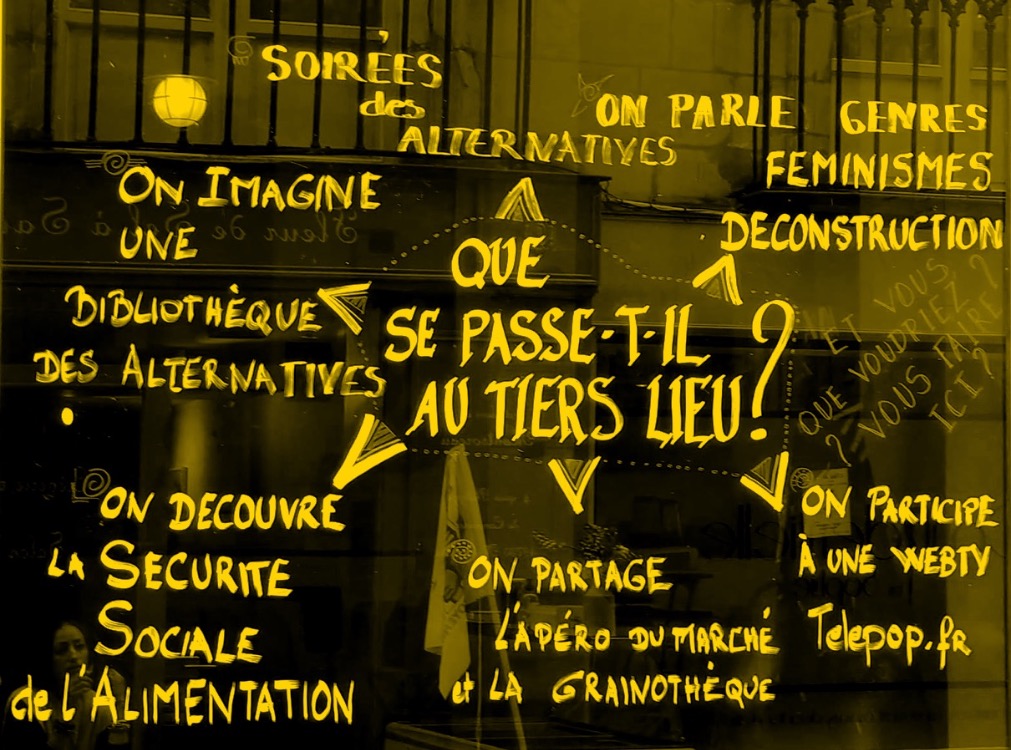 SOIRÉES
des
ALTERNATIVES
ON PARLE GENRES
FEMINISMES
DECONSTRUCTION
ON IMAGINE
UNE
BIBLIOTHÈQUE
DES ALTERNATIVES
QUE
SE PASSE-T-IL
AU TIERS LIEU ?
ET VOUS
QUE VOUDRIEZ
VOUS FAIRE
ICI ?
ON DECOUVRE
LA SECURITE
SOCIALE
de l'ALIMENTATION
ON PARTAGE
L'APÉRO DU MARCHÉ
et LA GRAINOTHÈQUE
ON PARTICIPE
À UNE WEBTV
Telepop.fr